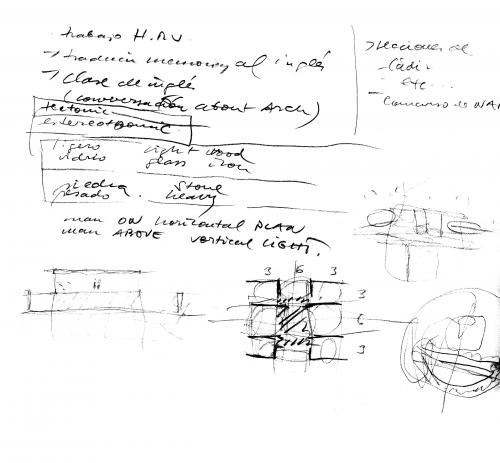 trabajo H.P.V.
→ traducir memorray al inglés
→ clase de inglés
(conversation about Arch)
tectonic
estereotomic
ligero light wood
vidrio glass iron
piedra Stone
pesado heavy
man ON horizontal PLAN
man ABOVE vertical LIGHT.
→ lecciones de
Cádiz
etc...
- Concurso de
3 6 3
3
6
3